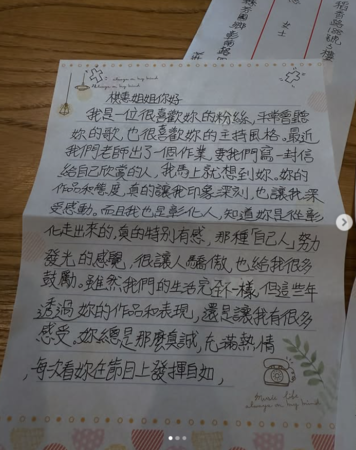 稻香路
女士
always in my mind
棋惠姐姐你好
我是一位很喜歡妳的粉絲、平常會聽
妳的歌,也很喜歡妳的主持風格。最近
我們老師出了一個作業,要我們寫一封信
給自己欣賞的人,我馬上就想到妳。妳的
作品和態度,真的讓我印象深刻,也讓我深
受感動。而且我也是彰化人,知道妳是從彰
化走出來的,真的特別有感,那種「自己人」努力
發光的感覺,很讓人驕傲,也給我很多
鼓勵。雖然我們的生活完全不一樣,但這些年
透過妳的作品和表現,還是讓我有很多
感受。妳總是那麼真誠,充滿熱情
,每次看妳在節目上發揮自如,
always in my mind